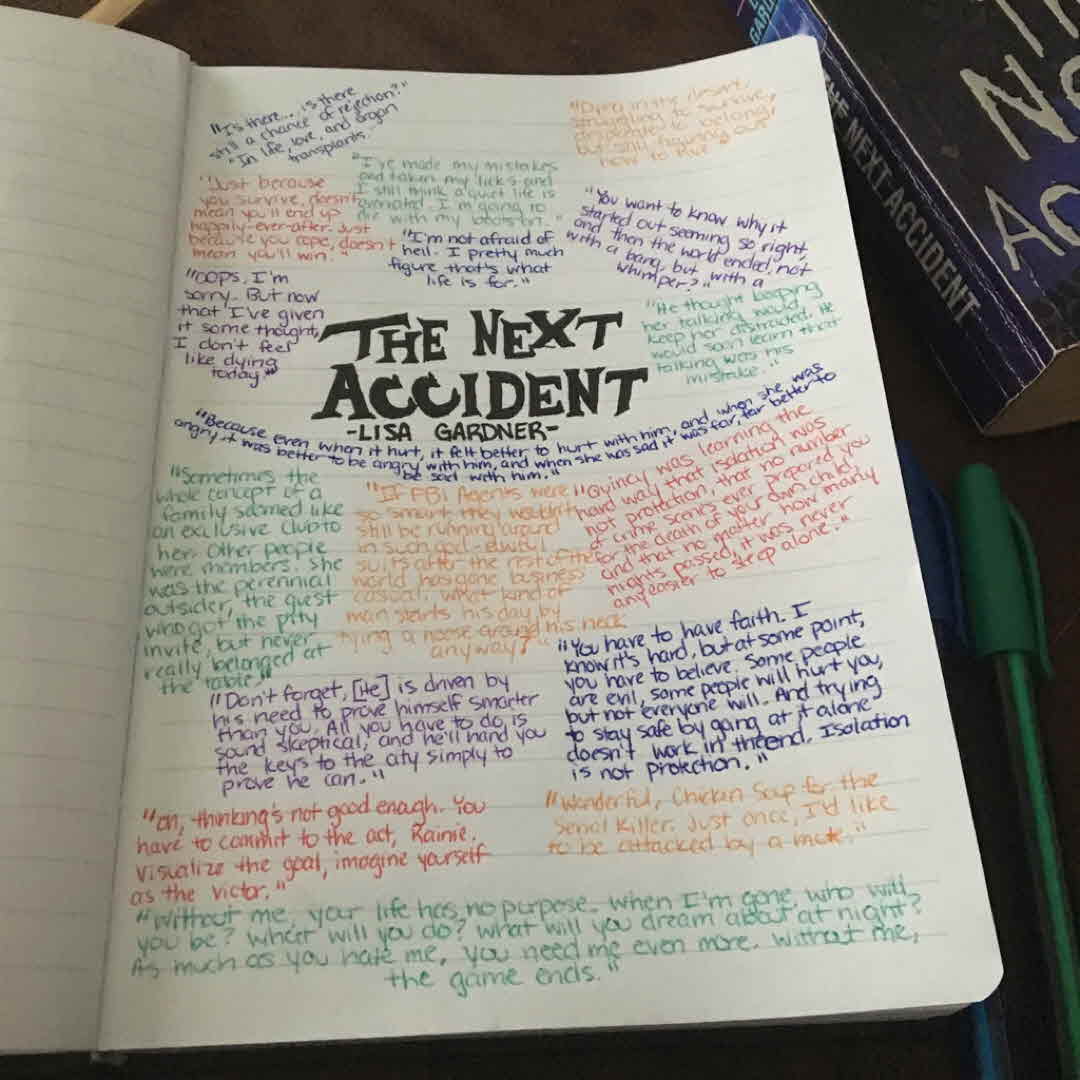 "Is there... is there
still a chance of rejection?"
"In life, love, and organ
transplants."
"Dying in the desert,
struggling to survive,
desperate to belong,
but still having out
how to
"I've made my mistakes
and taken my licks and
I still think a quiet life is
overrated. I'm going to
die with my boots on."
"Just because
you survive, doesn't
mean you'll end up
happily-ever-after. Just
because you cope, doesn't
mean you'll win."
"You want to know why it
started out seeming so right,
and then the world ended, not
with a bang, but with a
whimper?"
"I'm not afraid of
hell. I pretty much
figure that's what
life is for."
"OOPS, I'm
sorry. But now
that I've given
it some thought,
I don't feel
like dying
today."
"He thought keeping
her talking would
keep her distracted. He
would soon learn that
talking was his
mistake."
THE NEXT
ACCIDENT
-LISA GARDNER-
"Because even when it hurt, it felt better to hurt with him, and when she was
angry, it was better to be angry with him, and when she was sad it was far, far better to
be sad with him."
"Sometimes the
whole concept of a
family seemed like
an exclusive club to
her. Other people
were members. She
was the perennial
outsider, the guest
who got the pity
invite, but never
really belonged at
the table."
"If FBI Agents were
so smart they wouldn't
still be running around
in such god-awful
suits after the rest of the
world has gone business
casual. What kind of
man starts his day by
tying a noose around his neck
anyway?"
"Quincy was learning the
hard way that isolation was
not protection, that no number
of crime scenes ever prepared you
for the death of your own child,
and that no matter how many
nights passed, it was never
any easier to sleep alone."
"You have to have faith. I
know it's hard, but at some point,
you have to believe. Some people
are evil, some people will hurt you,
but not everyone will. And trying
to stay safe by going at it alone
doesn't work in the end. Isolation
is not protection."
"Don't forget, [He] is driven by
his need to prove himself smarter
than you. All you have to do is
sound skeptical, and he'll hand you
the keys to the city simply to
prove he can."
"Oh, thinking's not good enough. You
have to commit to the act, Rainie.
Visualize the goal, imagine yourself
as the victor."
"Wonderful, Chicken Soup for the
Serial Killer. Just once, I'd like
to be attacked by a
"Without me, your life has no purpose. When I'm gone, who will
you be? What will you do? What will you dream about at night?
As much as you hate me, you need me even more. Without me,
the game ends."
THE NEXT ACCIDENT